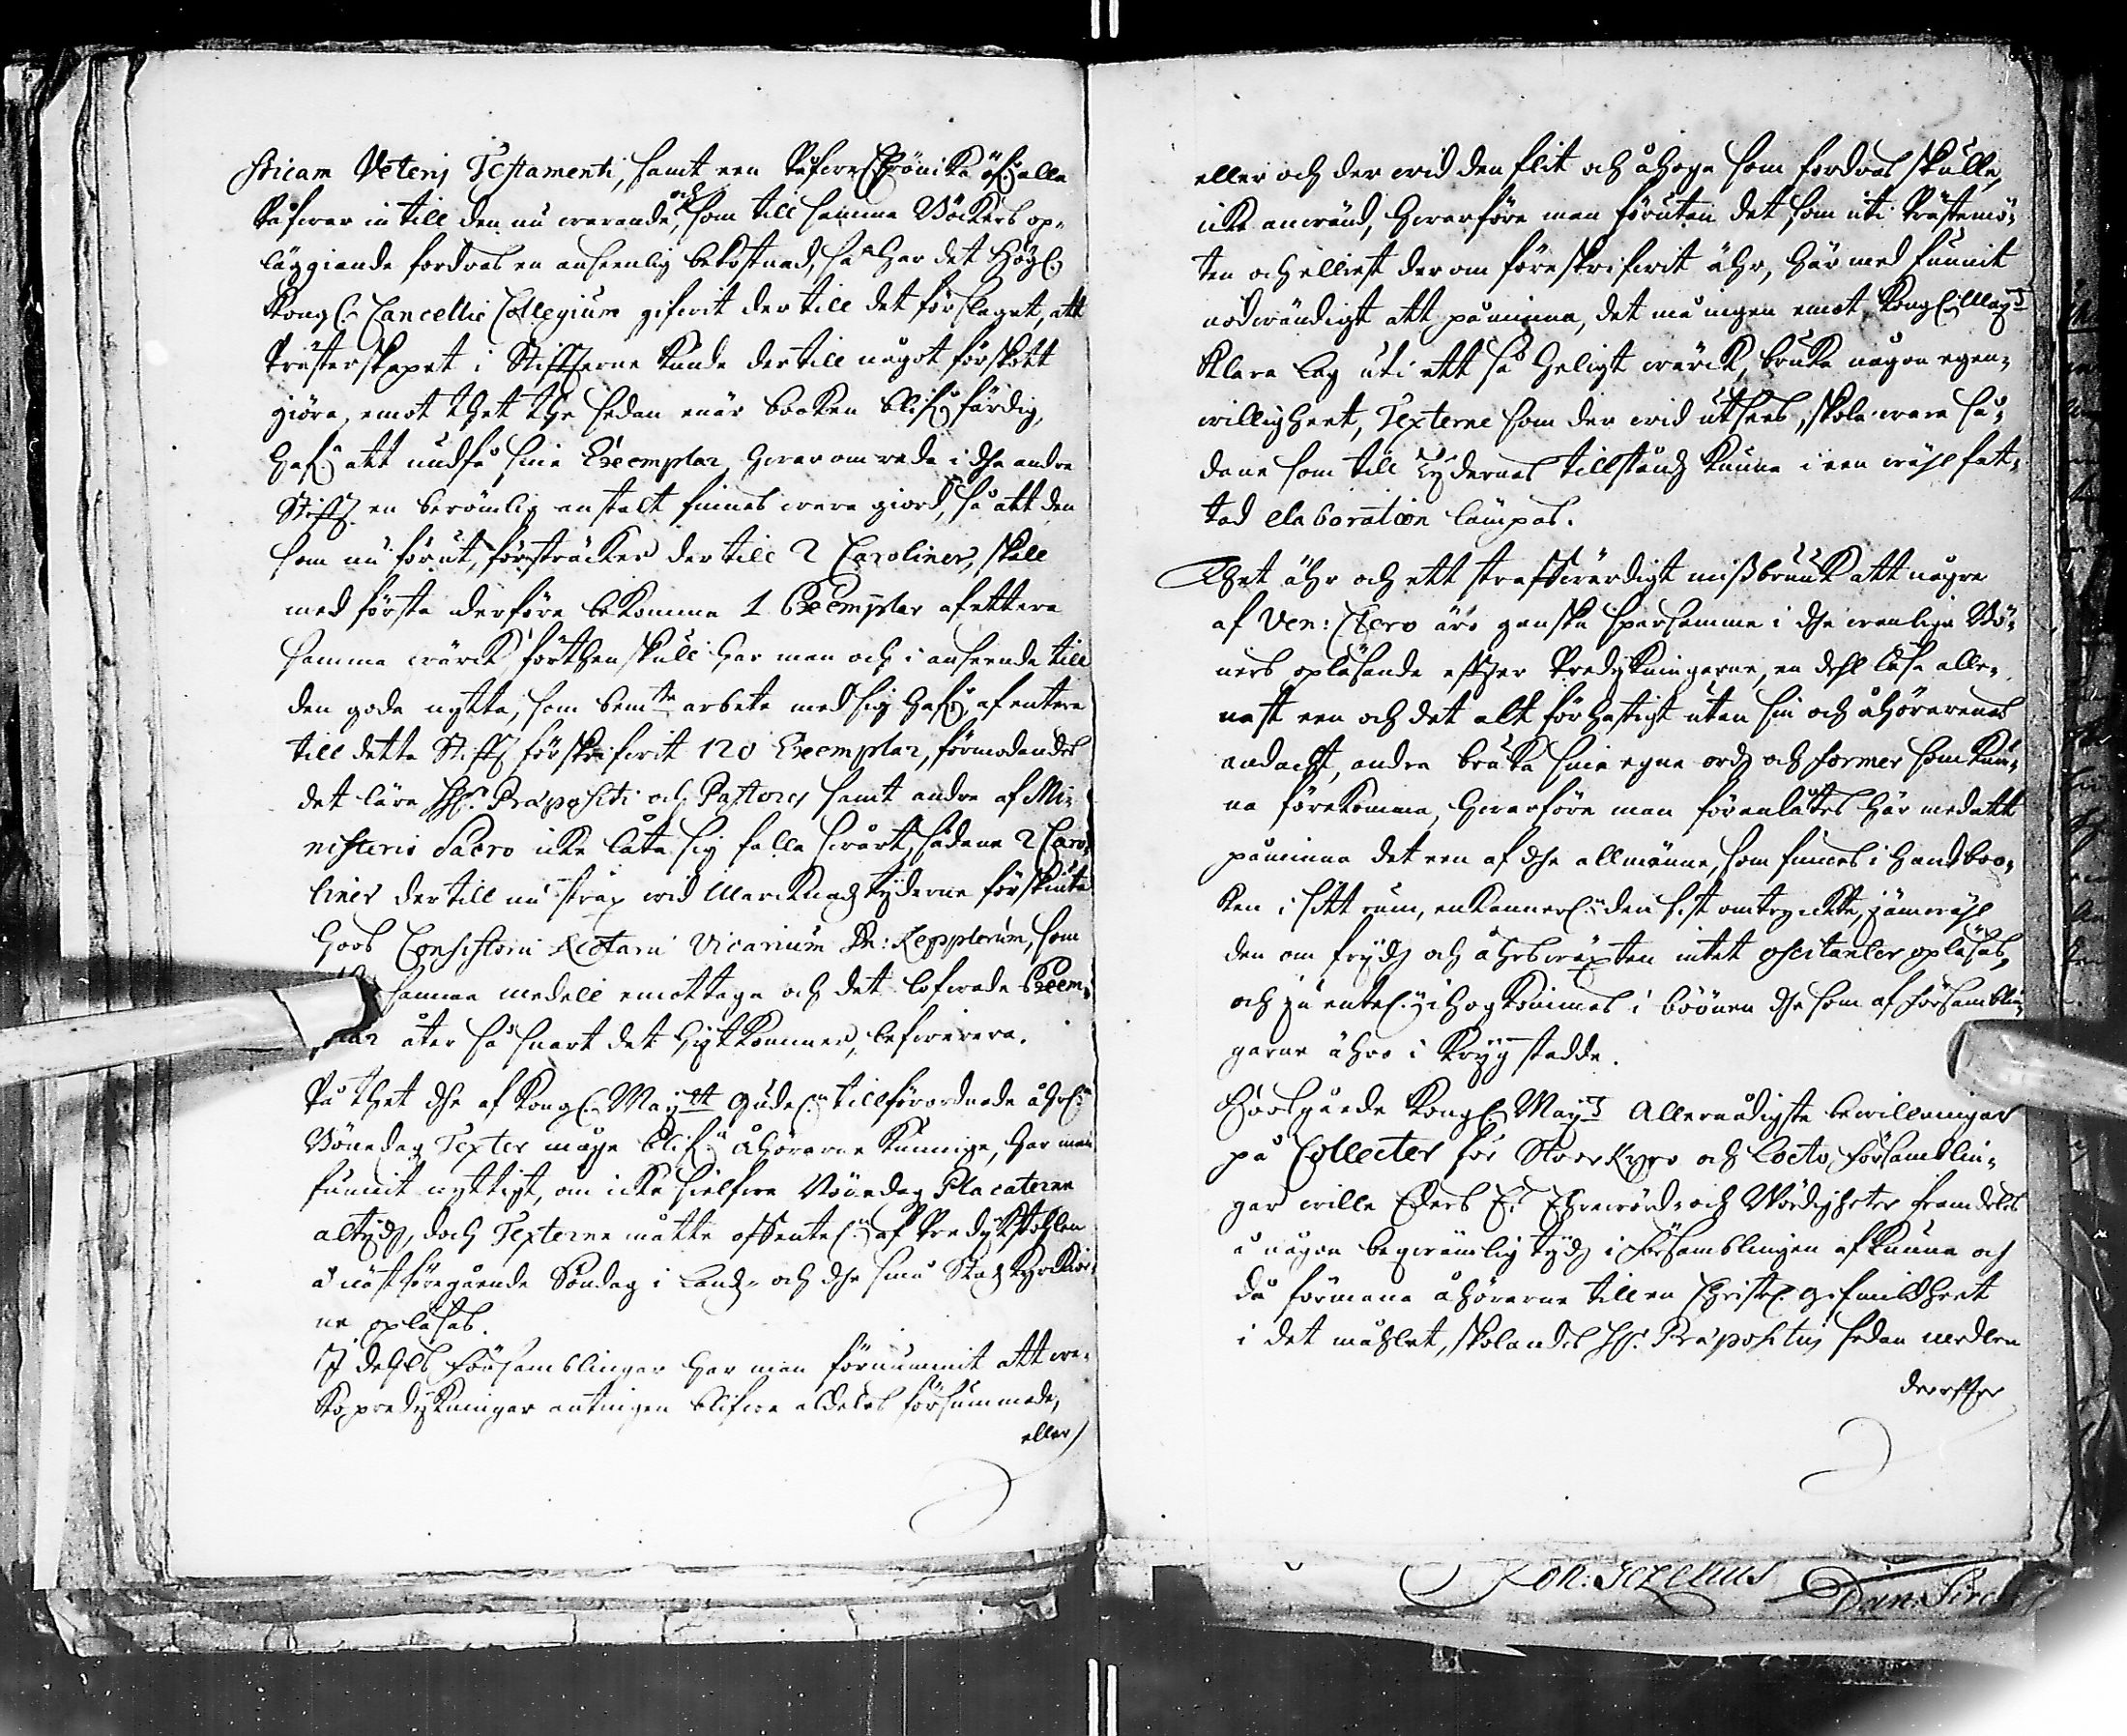 sticam Veteris Testamenti, samt een Påfwe Chrönicka öfr alla
Påfwar in till den nu warande, och som till samma Böckers op-
läggiande fordras en anseenlig bekostnad, så har det Högl:
Kongl: Cancellie Collegium gifwit der till det förslaget, att
Prästerskapet i Stifften kunde der till något förskott
giöra, emot thet the sedan enär boken blifr färdig,
hafr att undfå sine Exemplar, hwarom reda i dhe andra
Stifft en berömlig anstalt finnes wara giord, så att den
som nu förut, försträcker der till 2 Caroliner, skall
med första derföre bekomma 1 Exemplar af ettera
samma wärck förthenskull har man och i anseende till
den goda nytta, som bemte arbete med sig hafr, afentera
till detta Stifft förskrifwit 120 Exemplar, förmodandes
det lära HH. Præpositi och Pastores samt andre af Mi-
nisterio Sacro icke låta sig falla swårt, sådane 2 Caro-
liner der till nu strax wid Marcknadz tyderne förskiuta
hoos Consistorii Notarii Vicarium Dn: Kepplerum, som
samma medell emottaga och det lofwade Exem-
plar åter så snart det hyt kommer, lefwerera.
På thet dhe af Kongl: Maijtt Gudel:n tillförordnade åhrl:e
Bönedag Texter måge blifr åhörarne kunnige, har man
funnit nyttigt, om icke sielfwa Bönedag Placaterne
altydh, doch Texterne måtte offentel:n af Predykstohlen
å näst föregående Söndag i Land- och dhe små Stadz kyrckior-
ne opläsas.
I dehls församblingar har man förnummit att we-
ko predykningar antingen blifwa aldeles försummade,
eller
eller och der wid den flit och åhoga som fordras skulle,
icke anwänd, hwarföre man förutan det som uti Prästemö-
ten och elliest der om föreskrifwit ähr, här med funnit
nödwändigt att påminna, det må ingen emot Kongl: Maijtz
klara Lag uti ett så heligt wärck, bruka någon egen-
willigheet, Texterne som der wid utsees, skola wara så-
dane som till Tydernas tillstånd kunna i een wähl fat-
tad elaboration lämpas.
Thet ähr och ett straffwärdigt mißbruuk att någre
af Ven: Clero äro ganska sparsamme i dhe wanlige Bö-
ners opläsande effter Predykningarne, en dehl läsa alle-
nast een och det alt förhastigt utan sin och åhörarenas
andacht, andra bruka sine egne ordh och former som kun-
na förekomma, hwarföre man föranlåtes här med att
påminna det een af dhe allmänne, som finnes i handboo-
ken i sitt rum, enkannerl:n den sist omtryckte, jämwähl
den om frydh och åhrswäxten intet oscitanter opläsas,
och ju entel:n ihogkommas i böönen dhe som af församblin-
garne ähro i Krygstadde.
Föregåede Kongl: Maijtz Allernådigste bewillningar
på Collecter för Stoorkyro och Locto församblin-
gar wille Eders Ehrewörd- och Wördigheter framdeles
å någon beqwämlig tydh i församblingen afkunna och
då förmana åhörarne till en Christel: gifmildheet
i det måhlet, skolandes HH. Præpositus sedan medlen
dereffter
Joh: Gezelius
Dan: Sirel